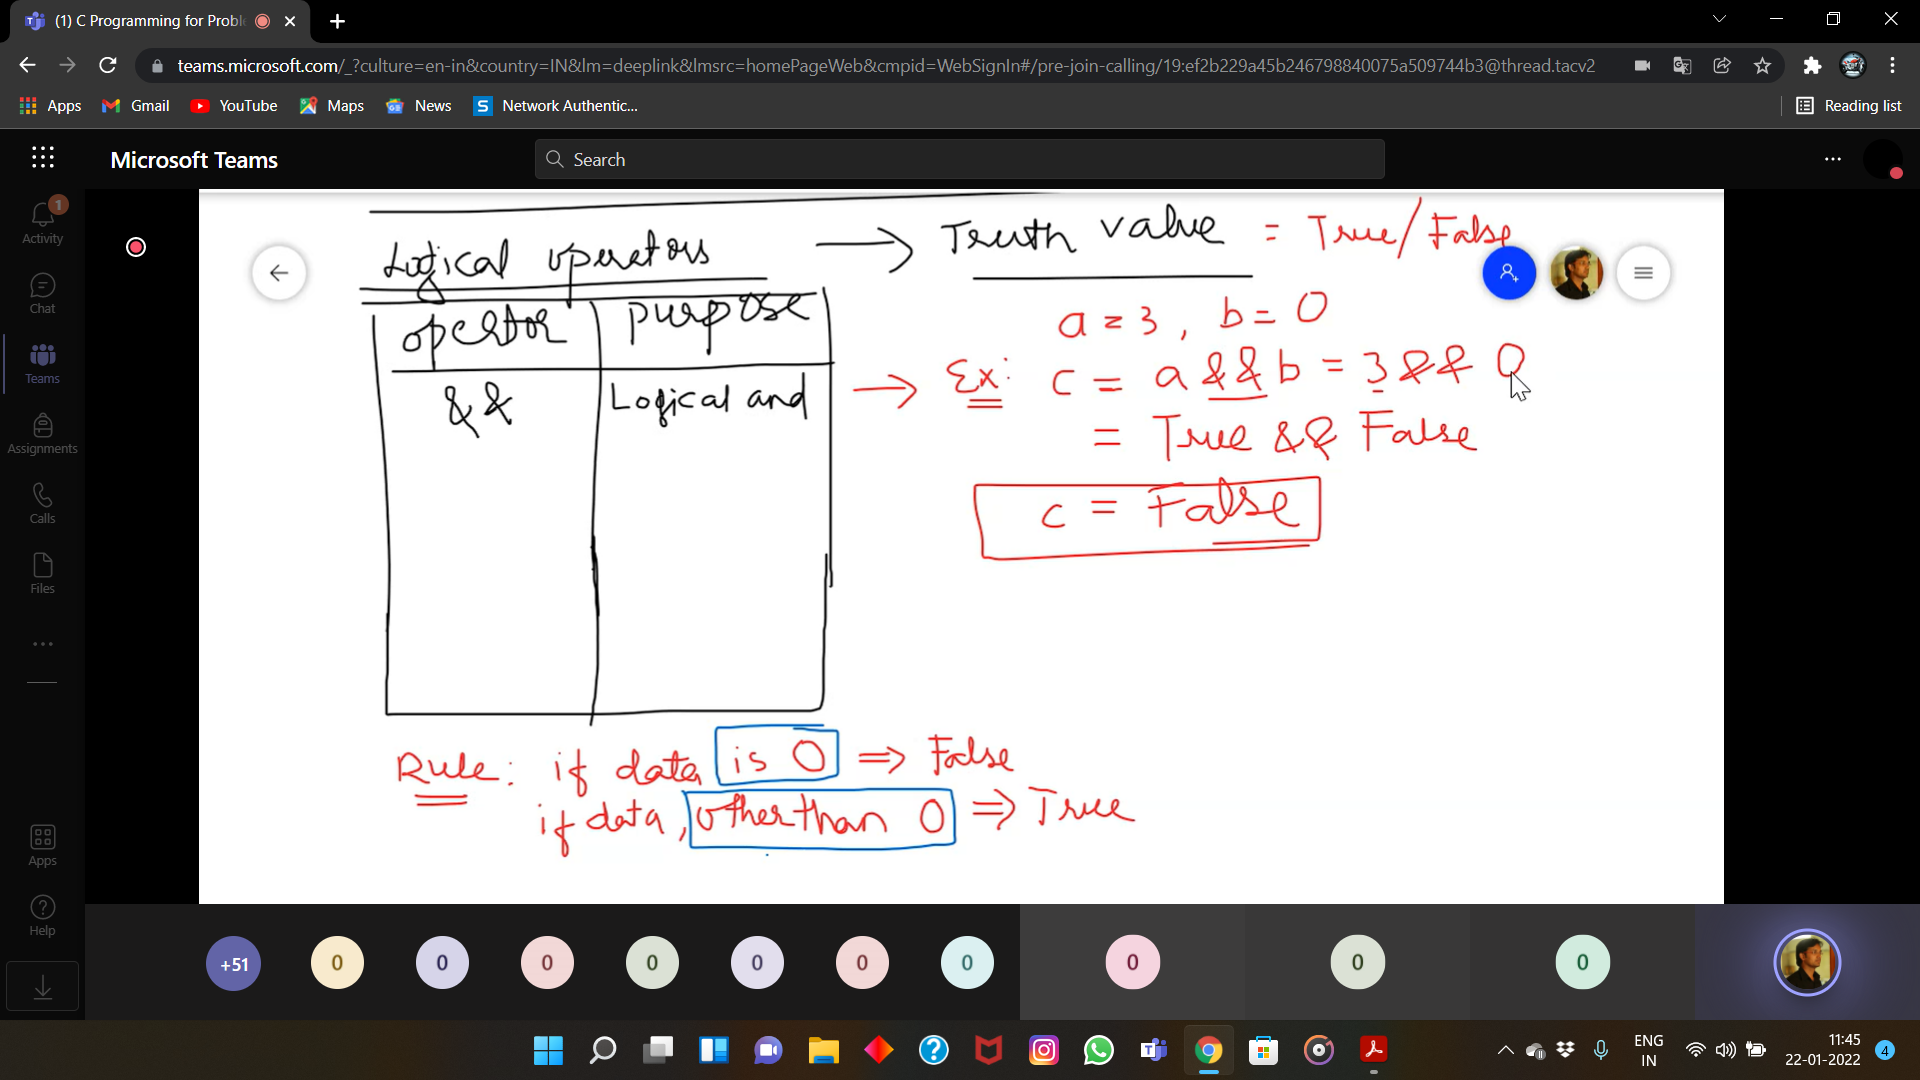 (1) C Programming for Probl
teams.microsoft.com/_?culture=en-in&country=IN&lm=deeplink&lmsrc=homePageWeb&cmpid=WebSignIn#/pre-join-calling/19:ef2b229a45b246798840075a509744b3@thread.tacv2
Apps Gmail YouTube Maps News Network Authentic... Reading list
Microsoft Teams
Search
1
Activity
Chat
Teams
Assignments
Calls
Files
Apps
Help
Logical operators → Truth value = True/False
opertor purpose
a = 3, b = 0
&& Logical and → Ex: c = a && b = 3 && 0
= True && False
c = False
Rule: if data is 0 ⇒ False
if data, other than 0 ⇒ True
+51 0 0 0 0 0 0 0 0 0 0
ENG
IN
11:45
22-01-2022
4